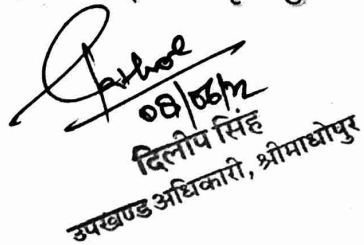 08/06/22
दिलीप सिंह
उपखण्ड अधिकारी, श्रीमाधोपुर